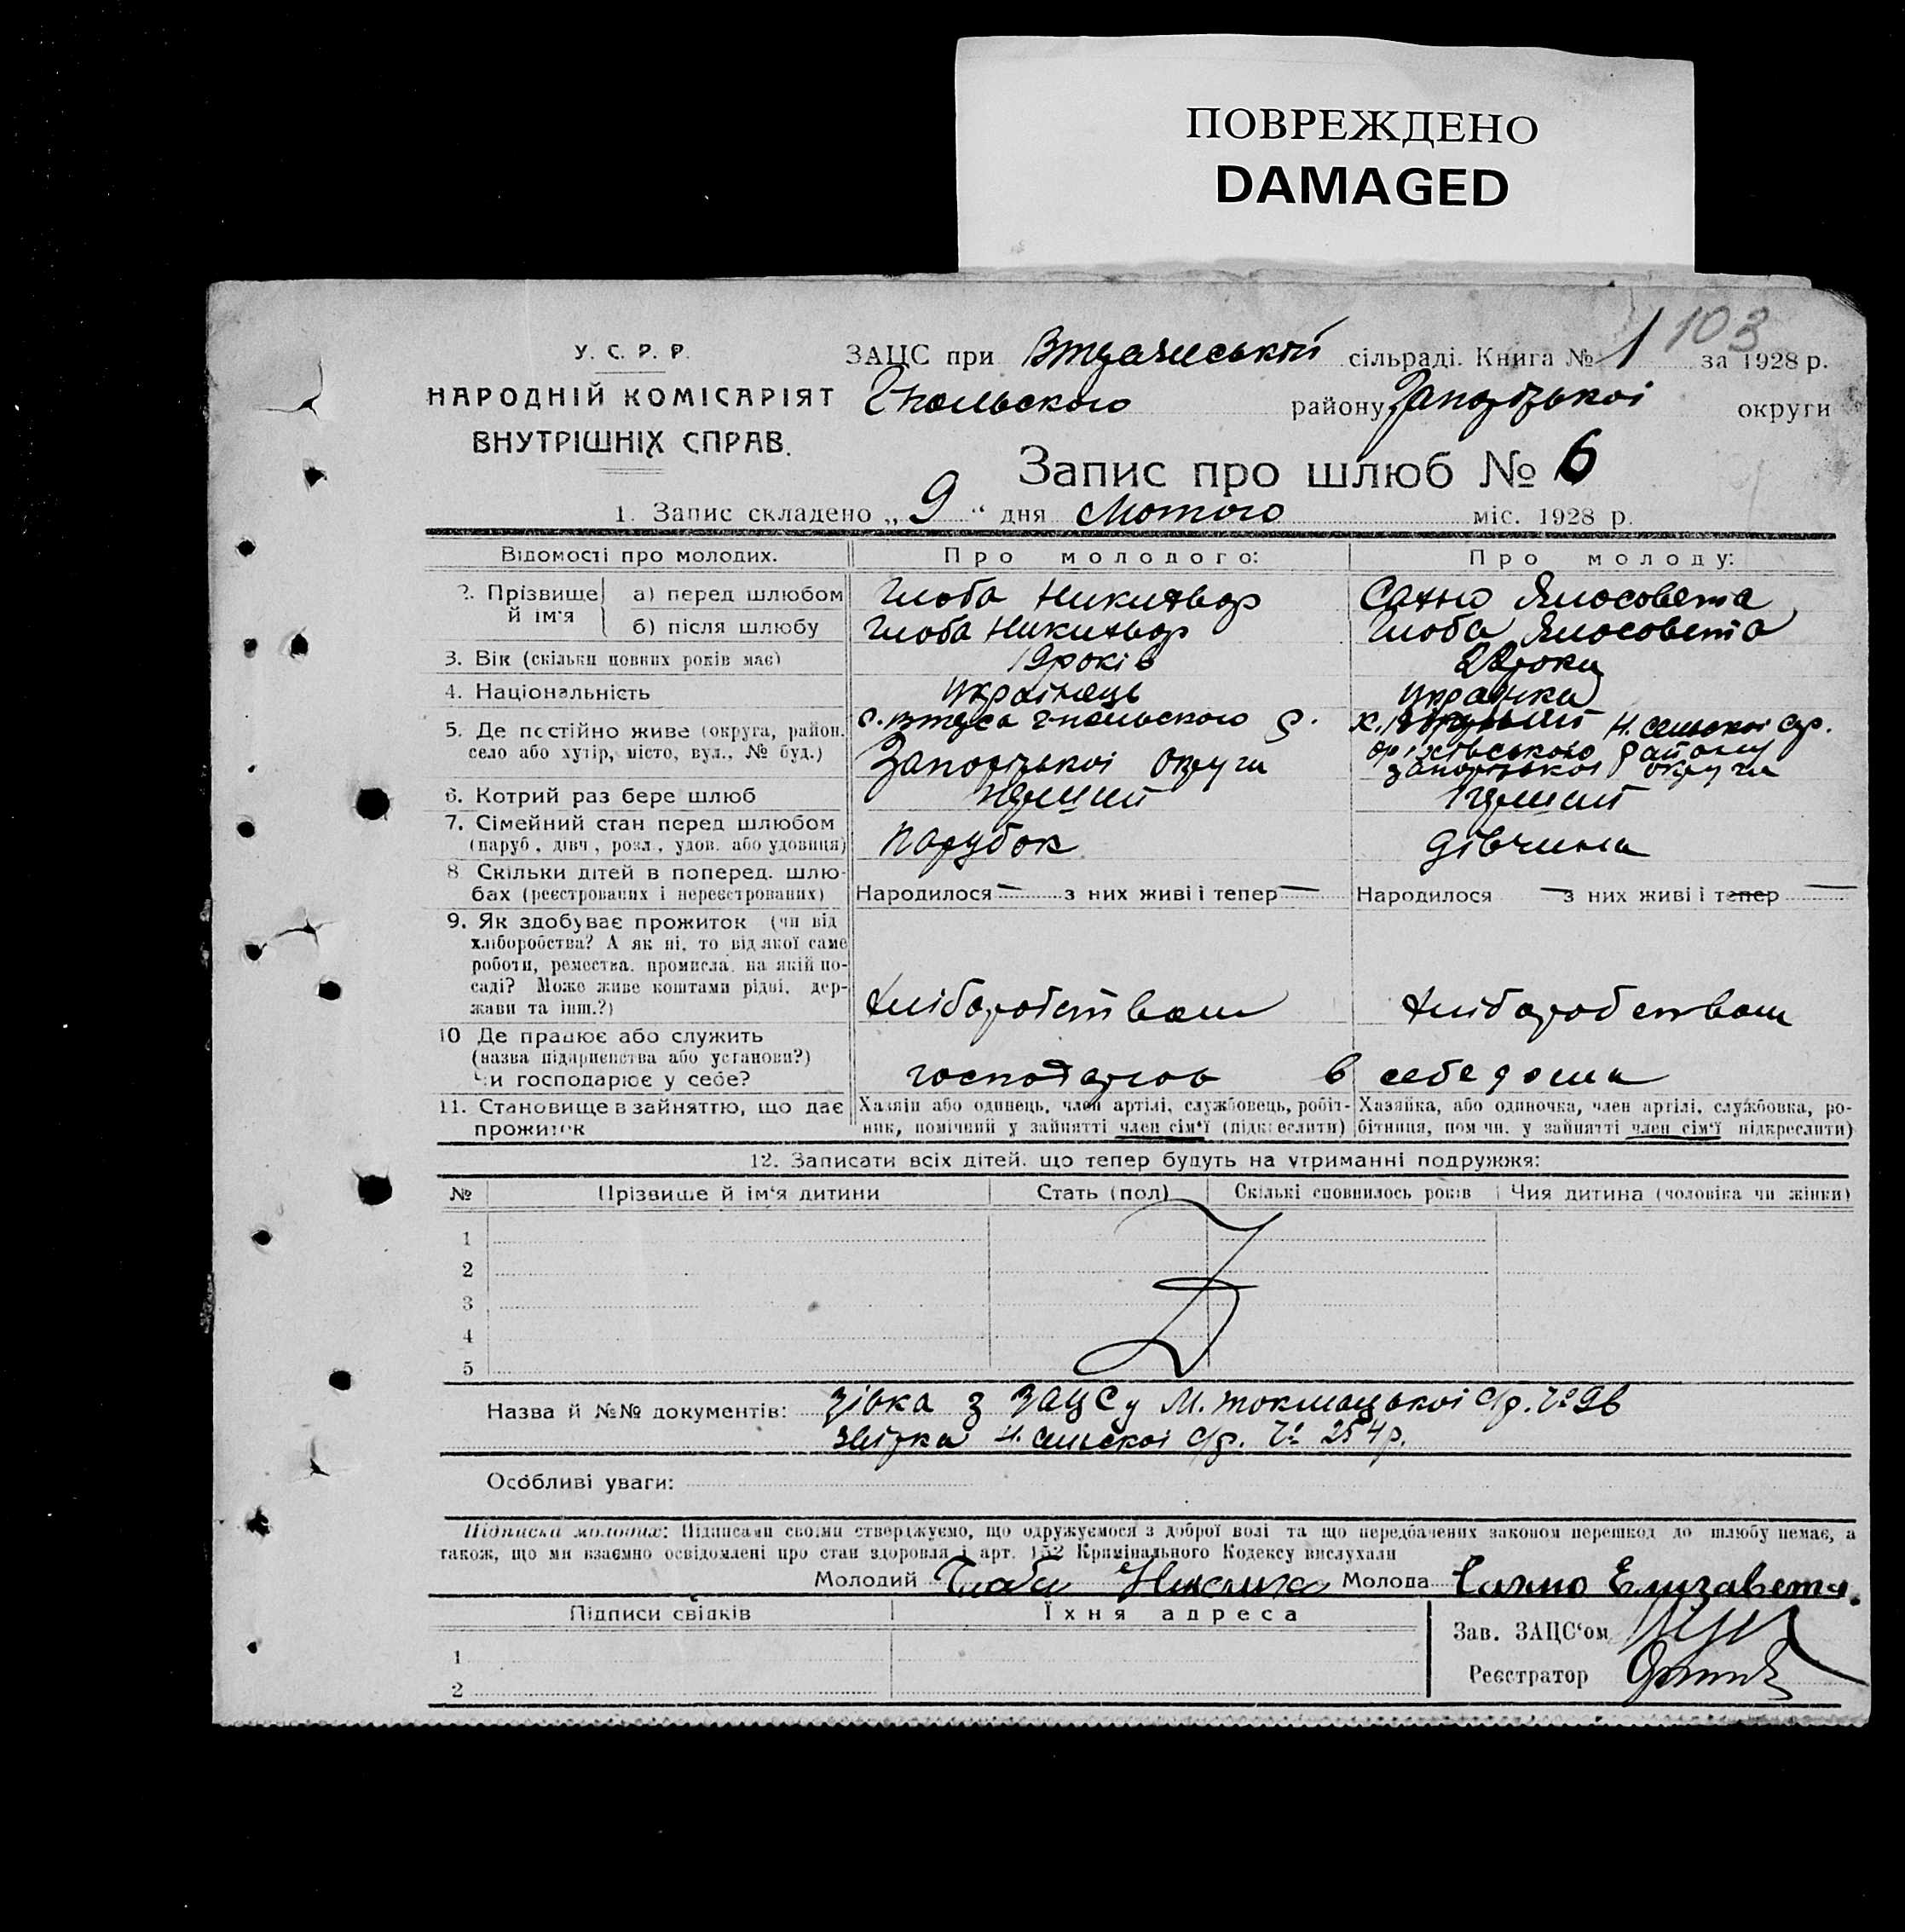 ПОВРЕЖДЕНО
DAMAGED
103
У. С. Р. Р.
НАРОДНІЙ КОМІСАРІЯТ
ВНУТРІШНІХ СПРАВ.
ЗАЦС при сільраді. Книга № 1 за 1928 р.
району Запорізької округи
Запис про шлюб № 6
1. Запис складено „ 9 “ дня Лютого міс. 1928 р.
Відомості про молодих. Про молодого: Про молоду:
2. Прізвище й ім'я а) перед шлюбом Глоба Никифор Сахно Ялосовета
б) після шлюбу Глоба Никифор Глоба Ялосовета
3. Вік (скільки повних років має) 19 років роки
4. Національність українець українка
5. Де постійно живе (округа, район, с. р. х. Н. сельскої ср.
село або хутір, місто, вул., № буд.) Запорізької округи оріхівського району
запорізької округи
6. Котрий раз бере шлюб перший перший
7. Сімейний стан перед шлюбом парубок дівчина
(паруб, дівч, розл, удов. або удовиця)
8 Скільки дітей в поперед. шлю-
бах (реєстрованих і нереєстрованих) Народилося — з них живі і тепер — Народилося — з них живі і тепер —
9. Як здобуває прожиток (чи від
хліборобства? А як ні, то від якої саме
роботи, ремества, промисла, на якій по-
саді? Може живе коштами рідні, дер-
жави та інш.?) хліборобством хліборобством
10 Де працює або служить
(назва підприємства або установи?)
Чи господарює у себе? в себе дома
11. Становище в зайняттю, що дає Хазяін або одинець, член артілі, службовець, робіт- Хазяйка, або одиночка, член артілі, службовка, ро-
прожиток ник, помічний у зайнятті член сім'ї (підкреслити) бітниця, помічн. у зайнятті член сім'ї підкреслити)
12. Записати всіх дітей, що тепер будуть на утриманні подружжя:
№ Прізвище й ім'я дитини Стать (пол) Скількі сповнилось років Чия дитина (чоловіка чи жінки)
1
2
3
4
5
Назва й №№ документів: з ЗАЦСу М. токмацької с/р. №
Н. с/р. № 254 р.
Особливі уваги:
Підписка молодих: Підписами своїми стверджуємо, що одружуємося з доброї волі та що передбачених законом перешкод до шлюбу немає, а
також, що ми взаємно освідомлені про стан здоровля і арт. 152 Кримінального Кодексу вислухали
Молодий Глоба Молода Сахно Елизавета.
Підписи свідків Їхня адреса
Зав. ЗАЦС'ом
1
Реєстратор
2